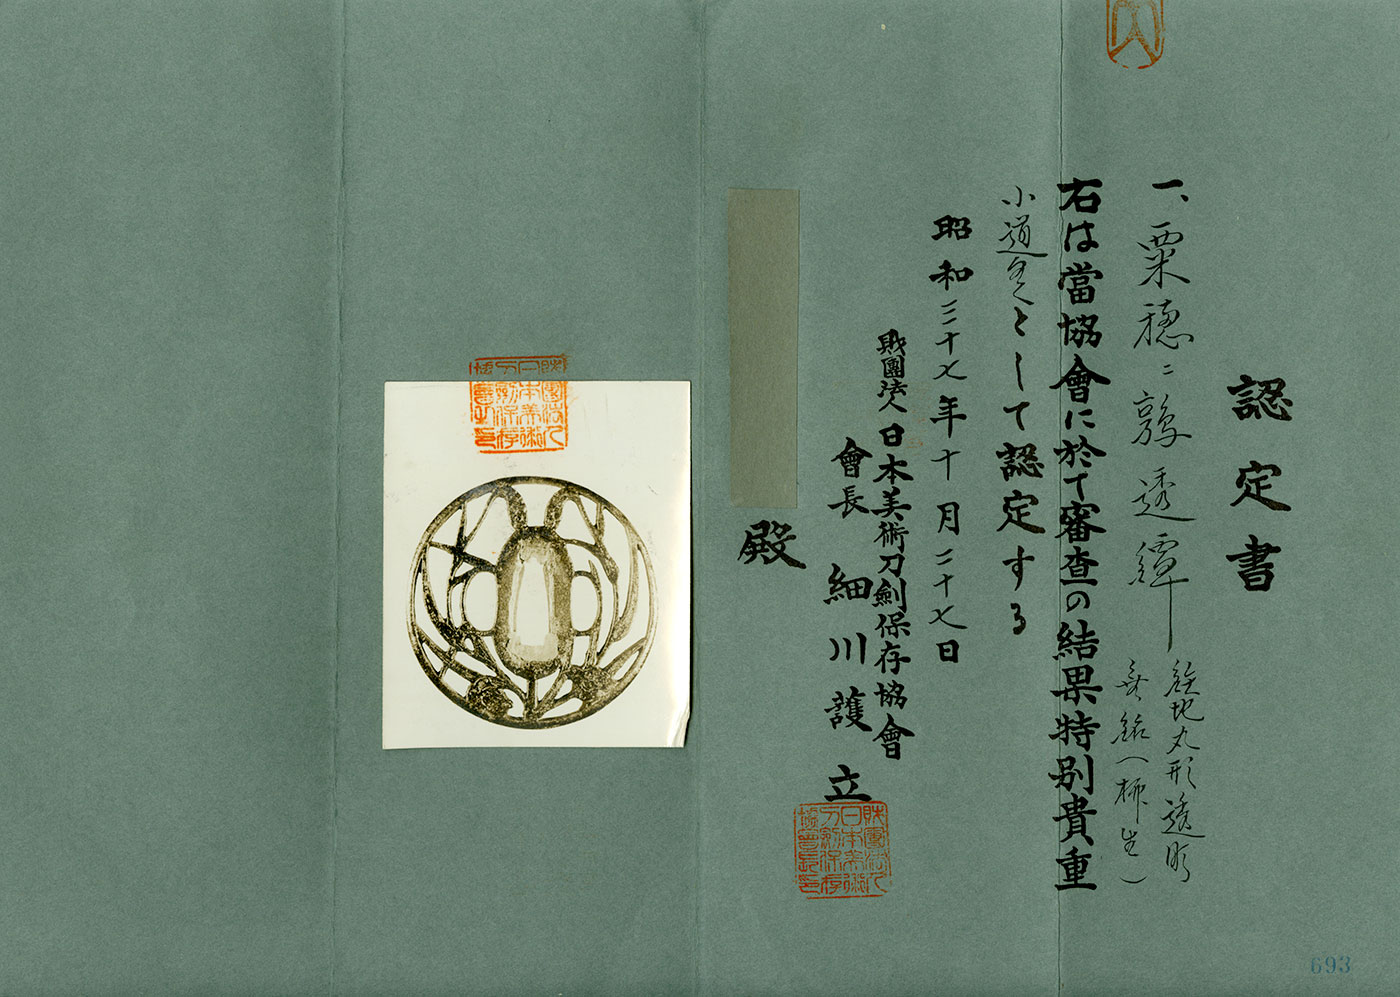 認定書
一、粟穂ニ鶉透鐔
鉄地丸形透彫
無銘(柳生)
右は當協會に於て審査の結果特別貴重
小道具として認定する
昭和三十七年十月二十七日
財團法人日本美術刀劍保存協會
會長 細川護立
殿
財團法人日本美術刀劍保存協會長印
693